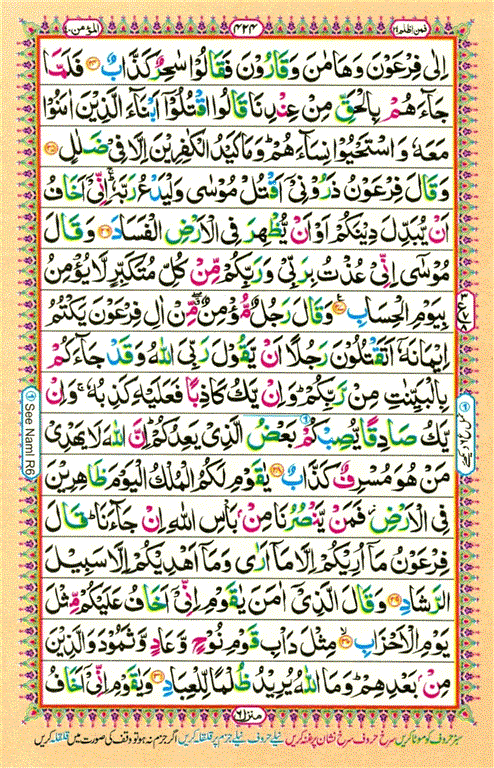 فمن اظلم ٢٤
٤٢٤
المؤمن ٤٠
اِلٰى فِرْعَوْنَ وَهَامٰنَ وَقَارُوْنَ فَقَالُوْا سٰحِرٌ كَذَّابٌ ﴿۲۴﴾ فَلَمَّا
جَآءَهُمْ بِالْحَقِّ مِنْ عِنْدِنَا قَالُوا اقْتُلُوْٓا اَبْنَآءَ الَّذِيْنَ اٰمَنُوْا
مَعَهٗ وَاسْتَحْيُوْا نِسَآءَهُمْ ؕ وَمَا كَيْدُ الْكٰفِرِيْنَ اِلَّا فِيْ ضَلٰلٍ ﴿۲۵﴾
وَقَالَ فِرْعَوْنُ ذَرُوْنِيْٓ اَقْتُلْ مُوْسٰى وَلْيَدْعُ رَبَّهٗ ۚ اِنِّيْٓ اَخَافُ
اَنْ يُّبَدِّلَ دِيْنَكُمْ اَوْ اَنْ يُّظْهِرَ فِي الْاَرْضِ الْفَسَادَ ﴿۲۶﴾ وَقَالَ
مُوْسٰٓى اِنِّيْ عُذْتُ بِرَبِّيْ وَرَبِّكُمْ مِّنْ كُلِّ مُتَكَبِّرٍ لَّا يُؤْمِنُ
بِيَوْمِ الْحِسَابِ ﴿۲۷﴾ وَقَالَ رَجُلٌ مُّؤْمِنٌ ۖ مِّنْ اٰلِ فِرْعَوْنَ يَكْتُمُ
اِيْمَانَهٗٓ اَتَقْتُلُوْنَ رَجُلًا اَنْ يَّقُوْلَ رَبِّيَ اللّٰهُ وَقَدْ جَآءَكُمْ
بِالْبَيِّنٰتِ مِنْ رَّبِّكُمْ ؕ وَاِنْ يَّكُ كَاذِبًا فَعَلَيْهِ كَذِبُهٗ ۚ وَاِنْ
يَّكُ صَادِقًا يُّصِبْكُمْ بَعْضُ الَّذِيْ يَعِدُكُمْ ؕ اِنَّ اللّٰهَ لَا يَهْدِيْ
مَنْ هُوَ مُسْرِفٌ كَذَّابٌ ﴿۲۸﴾ يٰقَوْمِ لَكُمُ الْمُلْكُ الْيَوْمَ ظَاهِرِيْنَ
فِي الْاَرْضِ ؗ فَمَنْ يَّنْصُرُنَا مِنْۢ بَاْسِ اللّٰهِ اِنْ جَآءَنَا ؕ قَالَ
فِرْعَوْنُ مَآ اُرِيْكُمْ اِلَّا مَآ اَرٰى وَمَآ اَهْدِيْكُمْ اِلَّا سَبِيْلَ
الرَّشَادِ ﴿۲۹﴾ وَقَالَ الَّذِيْٓ اٰمَنَ يٰقَوْمِ اِنِّيْٓ اَخَافُ عَلَيْكُمْ مِّثْلَ
يَوْمِ الْاَحْزَابِ ﴿۳۰﴾ مِثْلَ دَاْبِ قَوْمِ نُوْحٍ وَّعَادٍ وَّثَمُوْدَ وَالَّذِيْنَ
مِنْۢ بَعْدِهِمْ ؕ وَمَا اللّٰهُ يُرِيْدُ ظُلْمًا لِّلْعِبَادِ ﴿۳۱﴾ وَيٰقَوْمِ اِنِّيْٓ اَخَافُ
See Naml R6
منزل ٦
سبز حروف کو موٹا کریں سرخ حروف سرخ نشان پر غنہ کریں نیلے حروف نیلے جزم پر قلقلہ کریں اگر جزم نہ ہو تو وقف کی صورت میں قلقلہ کریں